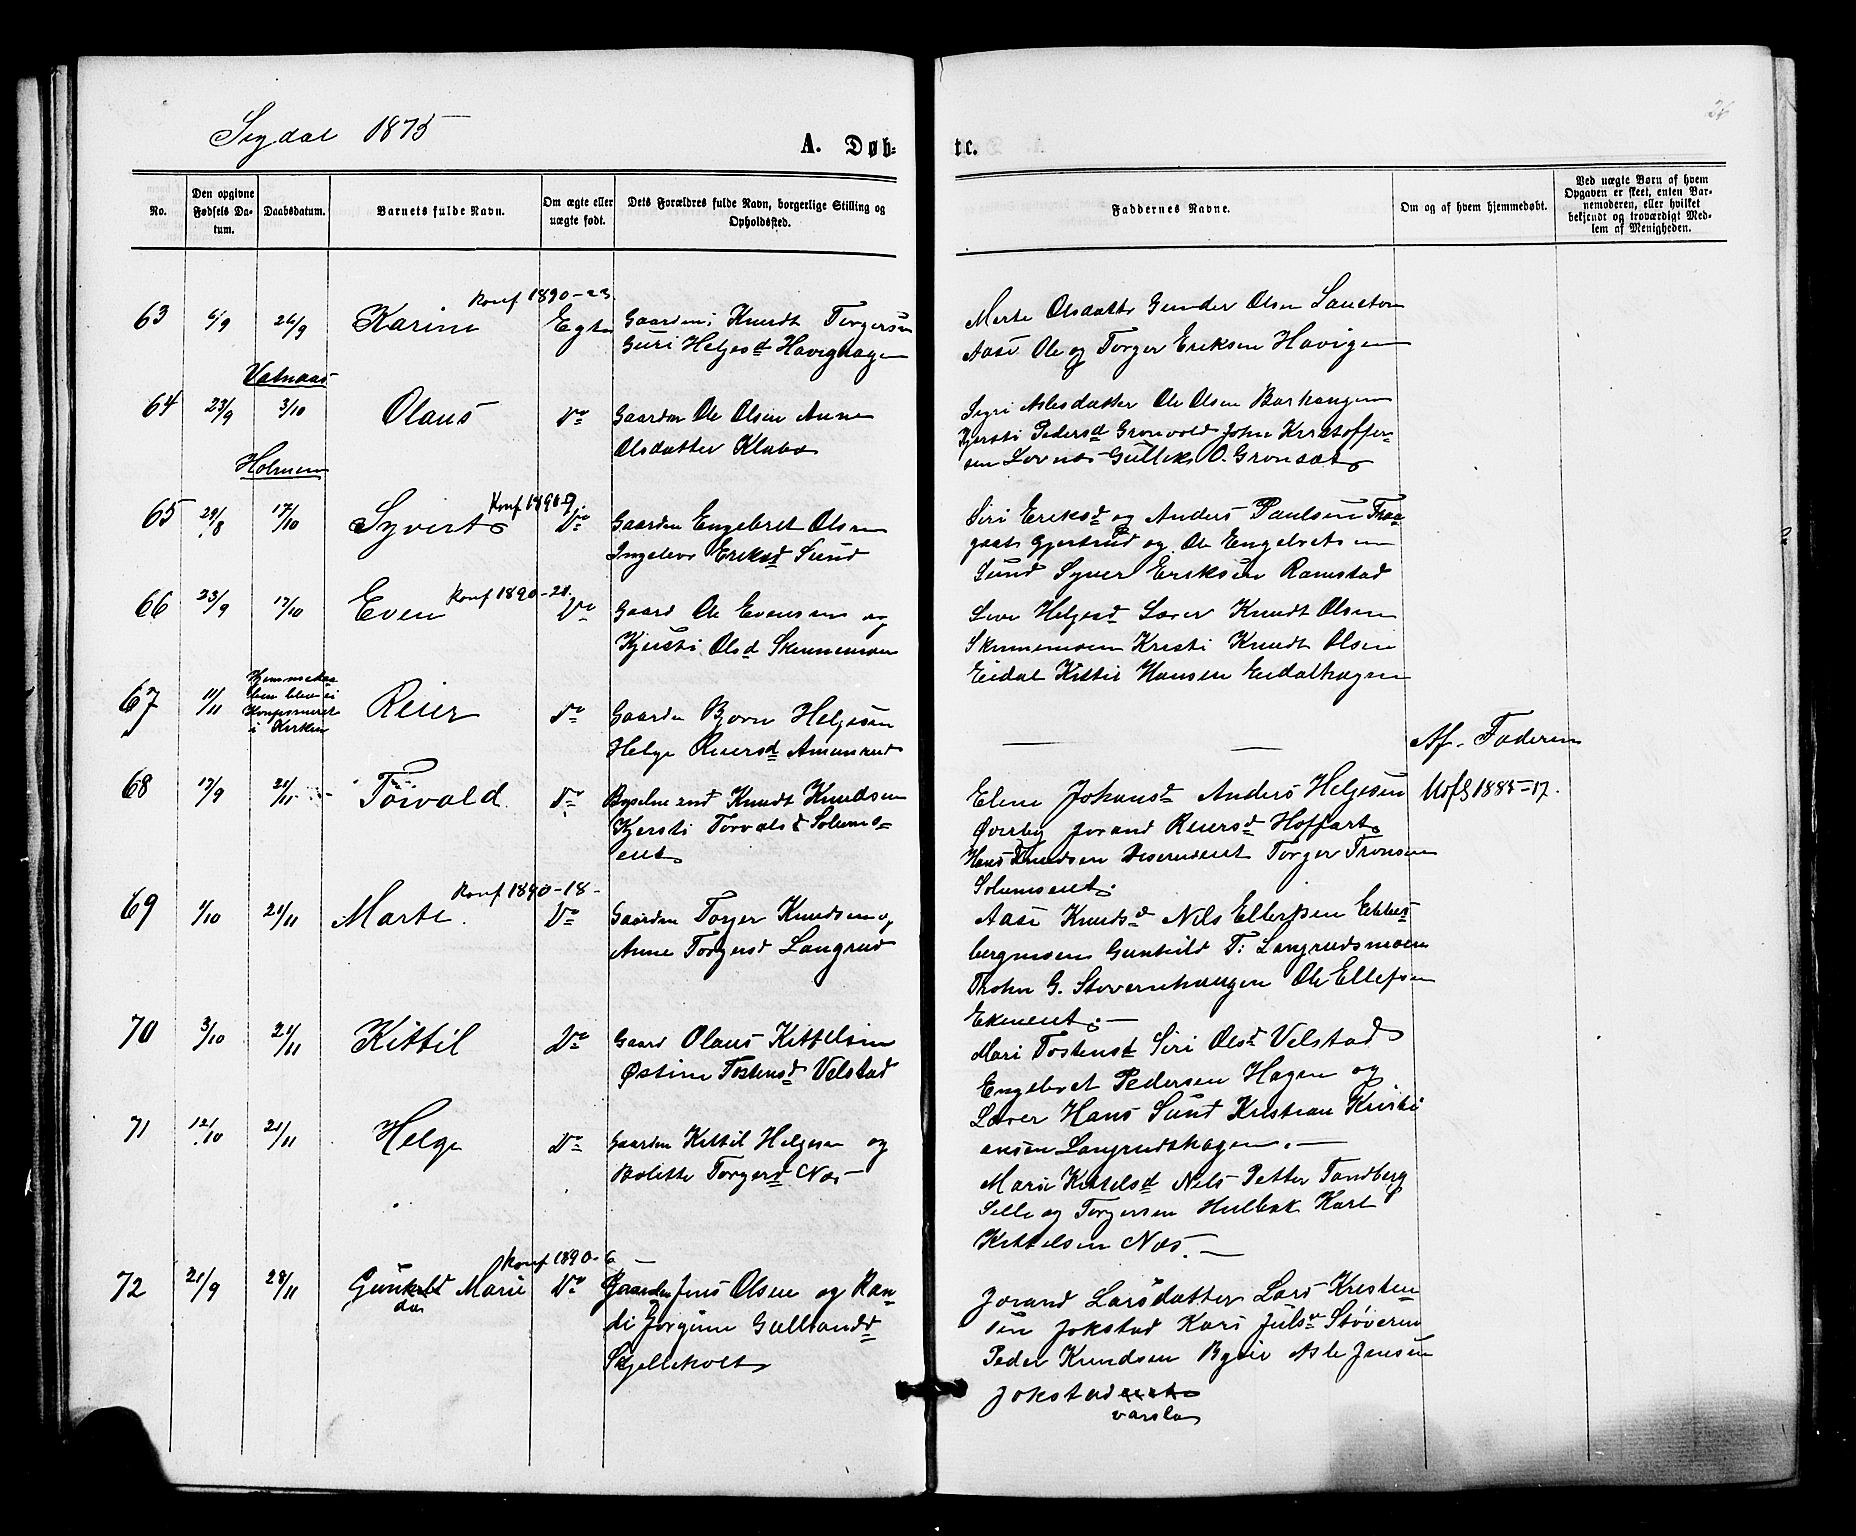 Sigdal 1875
A. Døb-
te.
26
No.
Den opgivne Fødsels Da-tum.
Daabsdatum.
Barnets fulde Navn.
Om ægte eller uægte født.
Dets Forældres fulde Navn, borgerlige Stilling og Opholdssted.
Faddernes Navne.
Om og af hvem hjemmedøbt.
Ved uægte Børn af hvem Opgaven er skeet, enten Bar-nemoderen, eller hvilket bekjendt og troværdigt Med-lem af Menigheden.
Konf 1890-23.
63 6/9 26/9 Karine Egte Gaardm: Knudt Torgersen
Guri Helgesd Havighagen
Marte Olsdatter Gunder Olsen
Aase Ole og Torger Eriksen Havigen
Vatnaas
64 23/9 3/10 Olaus Do Gaardm Ole Olsen Anne
Olsdatter Klabo
Sigri Aslesdatter Ole Olsen
Kjersti Pedersd Gronvold John Kristoffer-
sen Lovnes Gulleks O. Gronaat
Holmen
Konf 1890-9.
65 29/8 17/10 Syvert Do Gaardm Engebret Olsen
Ingeleiv Eriksd Sund
Siri Eriksd og Anders Paulsen
Gjertrud og Ole Engebretsen
Sund Syver Eriksen Ramstad
Konf 1890-21.
66 23/9 17/10 Even Do Gaard Ole Evensen og
Kjersti Olsd Skinnemoen
Live Helgesd Laver Knudt Olsen
Skinnemoen Kristi Knudt Olsen
Eidal Kittil Hansen Eidalhagen
67 11/11 Hjemmedaa-
ben blev ei
Konfirmeret
i Kirken
Reier Do Gaardm Bjorn Helgesen
Helge Reiersd Amunrud
Af Faderen
68 17/9 21/11 Torvald Do Knudt Knudsen
Kjersti Torvalsd Solums-
eiet
Elene Johansd Anders Helgesen
Overby Jorand Reiersd Hoffart
Hans Knudsen Torger Tronsen
Solumseiet.
Udfl 1885-17.
Konf 1890-18-
69 1/10 21/11 Marte Do Gaardm Torger Knudsen og
Anne Torgersd Langrud
Aase Knudsd Nils Ellefsen
bergmoen Gunhild T. Langrudsmoen
G. Stovernhaugen Ole Ellefsen
Ekeneiet.
70 3/10 21/11 Kittil Do Gaard Olaus Kittelsen
Østine Tostensd Velstad
Mari Tostensd Siri Olsd Velstad
Engebret Pedersen Hagen og
Laver Hans Sund Kristian Kristi
ansen Langrudshagen.
71 12/10 21/11 Helge Do Gaardm Kittil Helgesen og
Bolette Torgersd Næs
Marie Kittelsd Nils Petter Tandberg
Selle og Torgersen Hulbak Karl
Kittelsen Næs.
Konf 1890-6
72 21/9 28/11 Gunhild Marie Do Gaardm Jens Olsen og Ran-
da
di Jorgine Gulbrandsd
Skjelleholt
Jorand Larsdatter Lars Kristen
sen Jokstad Kari Julsd Støveren
Peder Knudsen Asle Jensen
Jokstad